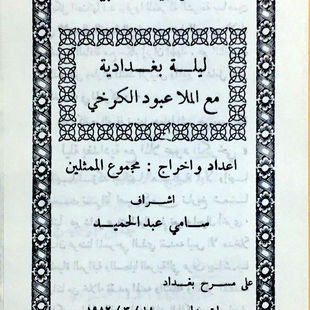 ليلة بغدادية
مع الملا عبود الكرخي
اعداد واخراج : مجموع الممثلين
اشراف
سامي عبد الحميد
على مسرح بغداد